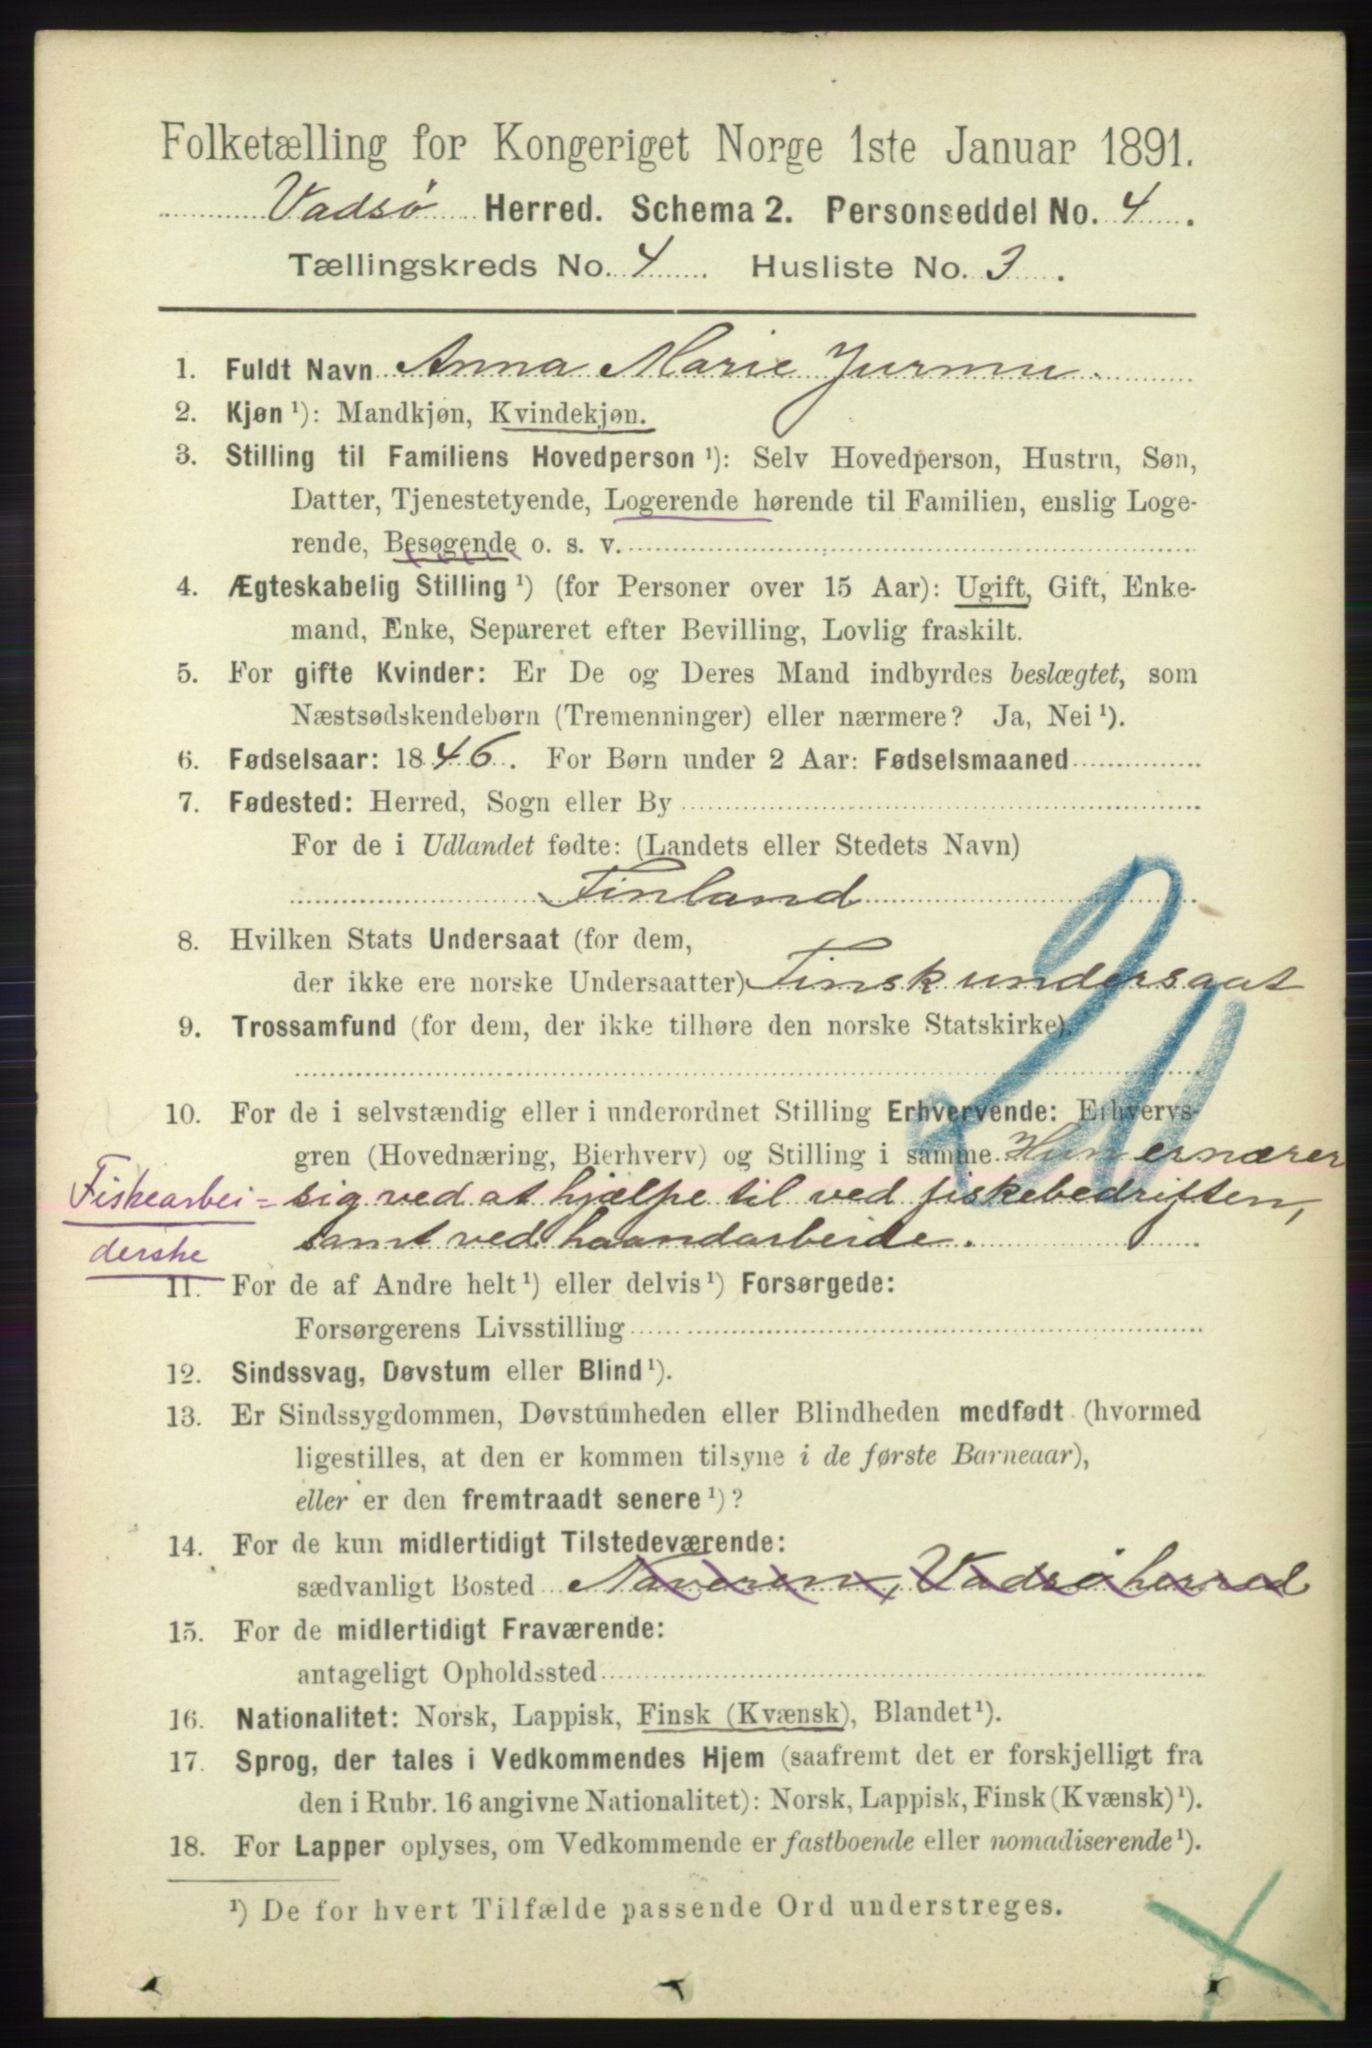 Folketælling for Kongeriget Norge 1ste Januar 1891.
Vadsø Herred. Schema 2. Personseddel No. 4.
Tællingskreds No. 4 Husliste No. 3.
1. Fuldt Navn Anna Marie Jurmu.
2. Kjøn ¹): Mandkjøn, Kvindekjøn.
3. Stilling til Familiens Hovedperson ¹): Selv Hovedperson, Hustru, Søn,
Datter, Tjenestetyende, Logerende hørende til Familien, enslig Loge-
rende, Besøgende o. s. v.
4. Ægteskabelig Stilling ¹) (for Personer over 15 Aar): Ugift, Gift, Enke-
mand, Enke, Separeret efter Bevilling, Lovlig fraskilt.
5. For gifte Kvinder: Er De og Deres Mand indbyrdes beslægtet, som
Næstsødskendebørn (Tremenninger) eller nærmere? Ja, Nei ¹).
6. Fødselsaar: 1846. For Børn under 2 Aar: Fødselsmaaned
7. Fødested: Herred, Sogn eller By
For de i Udlandet fødte: (Landets eller Stedets Navn)
Finland
8. Hvilken Stats Undersaat (for dem,
der ikke ere norske Undersaatter) Finsk undersaat
9. Trossamfund (for dem, der ikke tilhøre den norske Statskirke).
10. For de i selvstændig eller i underordnet Stilling Erhvervende: Erhvervs-
gren (Hovednæring, Bierhverv) og Stilling i samme. Hun ernærer
Fiskearbei= sig ved at hjælpe til ved fiskebedriften,
derske samt ved haandarbeide.
11. For de af Andre helt ¹) eller delvis ¹) Forsørgede:
Forsørgerens Livsstilling
12. Sindssvag, Døvstum eller Blind ¹).
13. Er Sindssygdommen, Døvstumheden eller Blindheden medfødt (hvormed
ligestilles, at den er kommen tilsyne i de første Barneaar),
eller er den fremtraadt senere ¹)?
14. For de kun midlertidigt Tilstedeværende:
sædvanligt Bosted Naveren, Vadsø herred
15. For de midlertidigt Fraværende:
antageligt Opholdssted
16. Nationalitet: Norsk, Lappisk, Finsk (Kvænsk), Blandet ¹).
17. Sprog, der tales i Vedkommendes Hjem (saafremt det er forskjelligt fra
den i Rubr. 16 angivne Nationalitet): Norsk, Lappisk, Finsk (Kvænsk) ¹).
18. For Lapper oplyses, om Vedkommende er fastboende eller nomadiserende ¹).
¹) De for hvert Tilfælde passende Ord understreges.